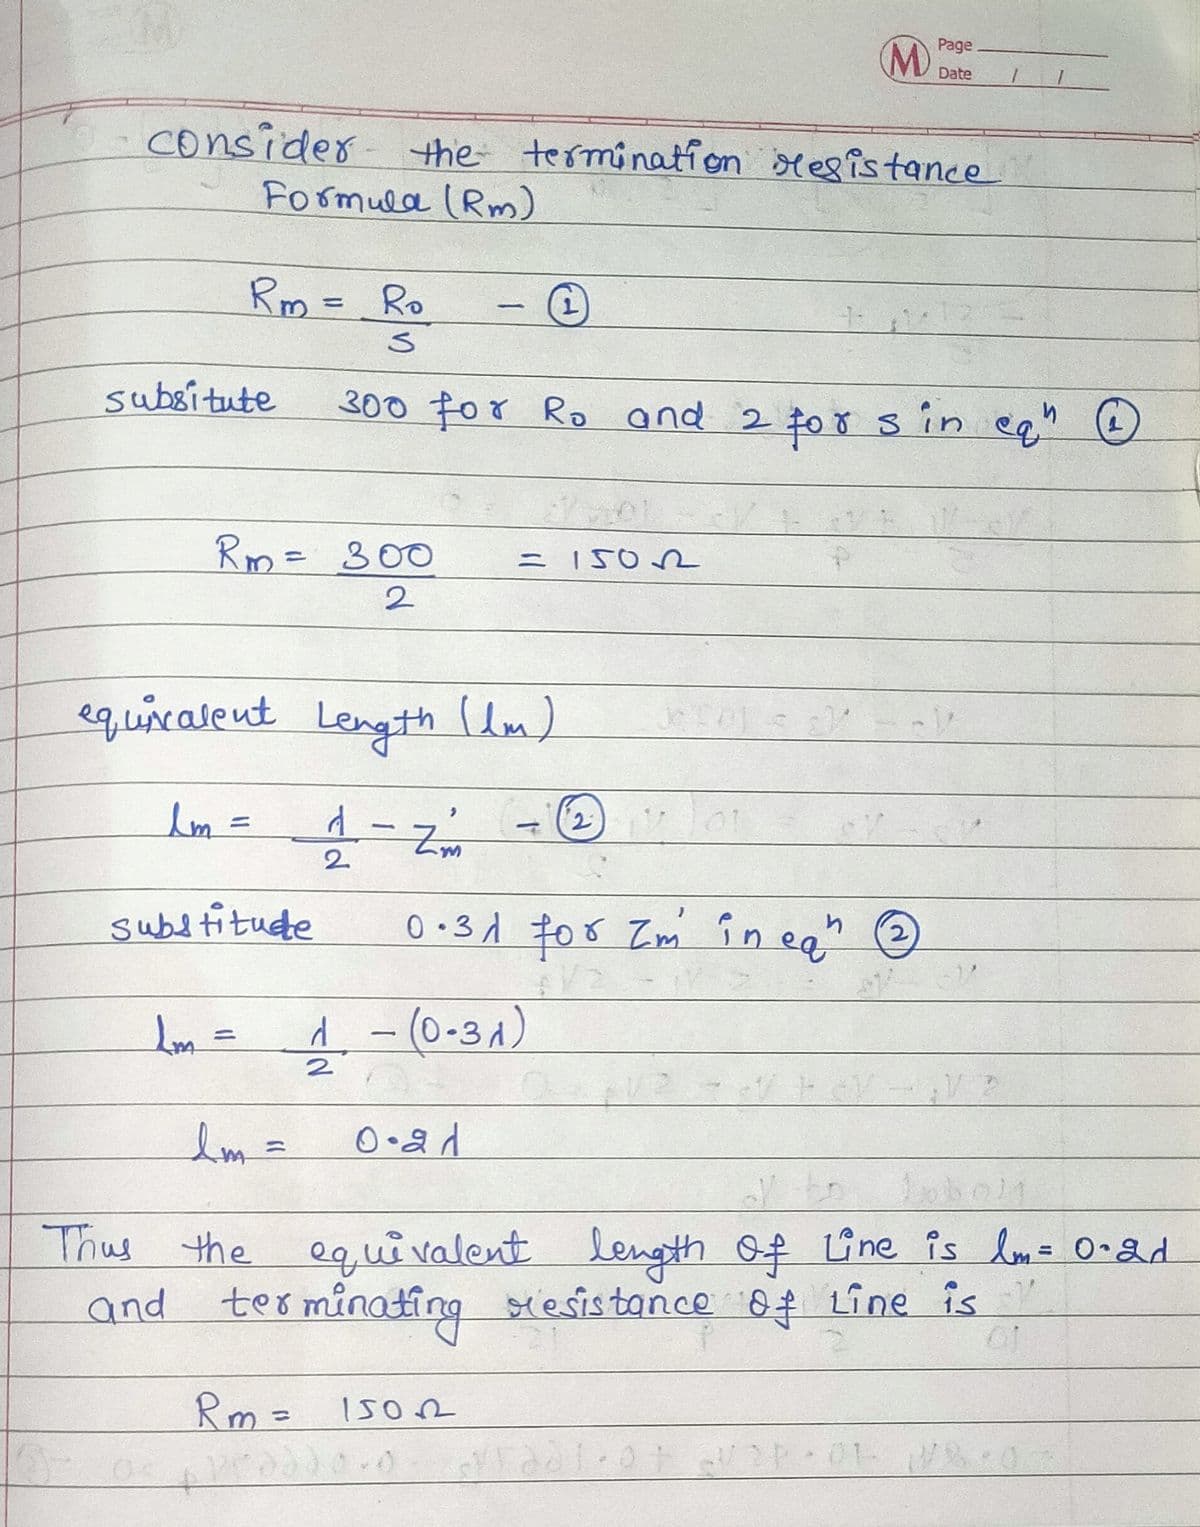 M Page
Date / /
consider the termination resistance
Formula (Rm)
Rm = Ro/s - ①
subsitute 300 for Ro and 2 for s in eqⁿ ①
Rm = 300/2 = 150 Ω
equivalent Length (lm)
lm = λ/2 - Zm' - ②
substitude 0.3λ for Zm' in eqⁿ ②
lm = λ/2 - (0.3λ)
lm = 0.2λ
Thus the equivalent length of Line is lm = 0.2λ
and terminating resistance of Line is
Rm = 150 Ω